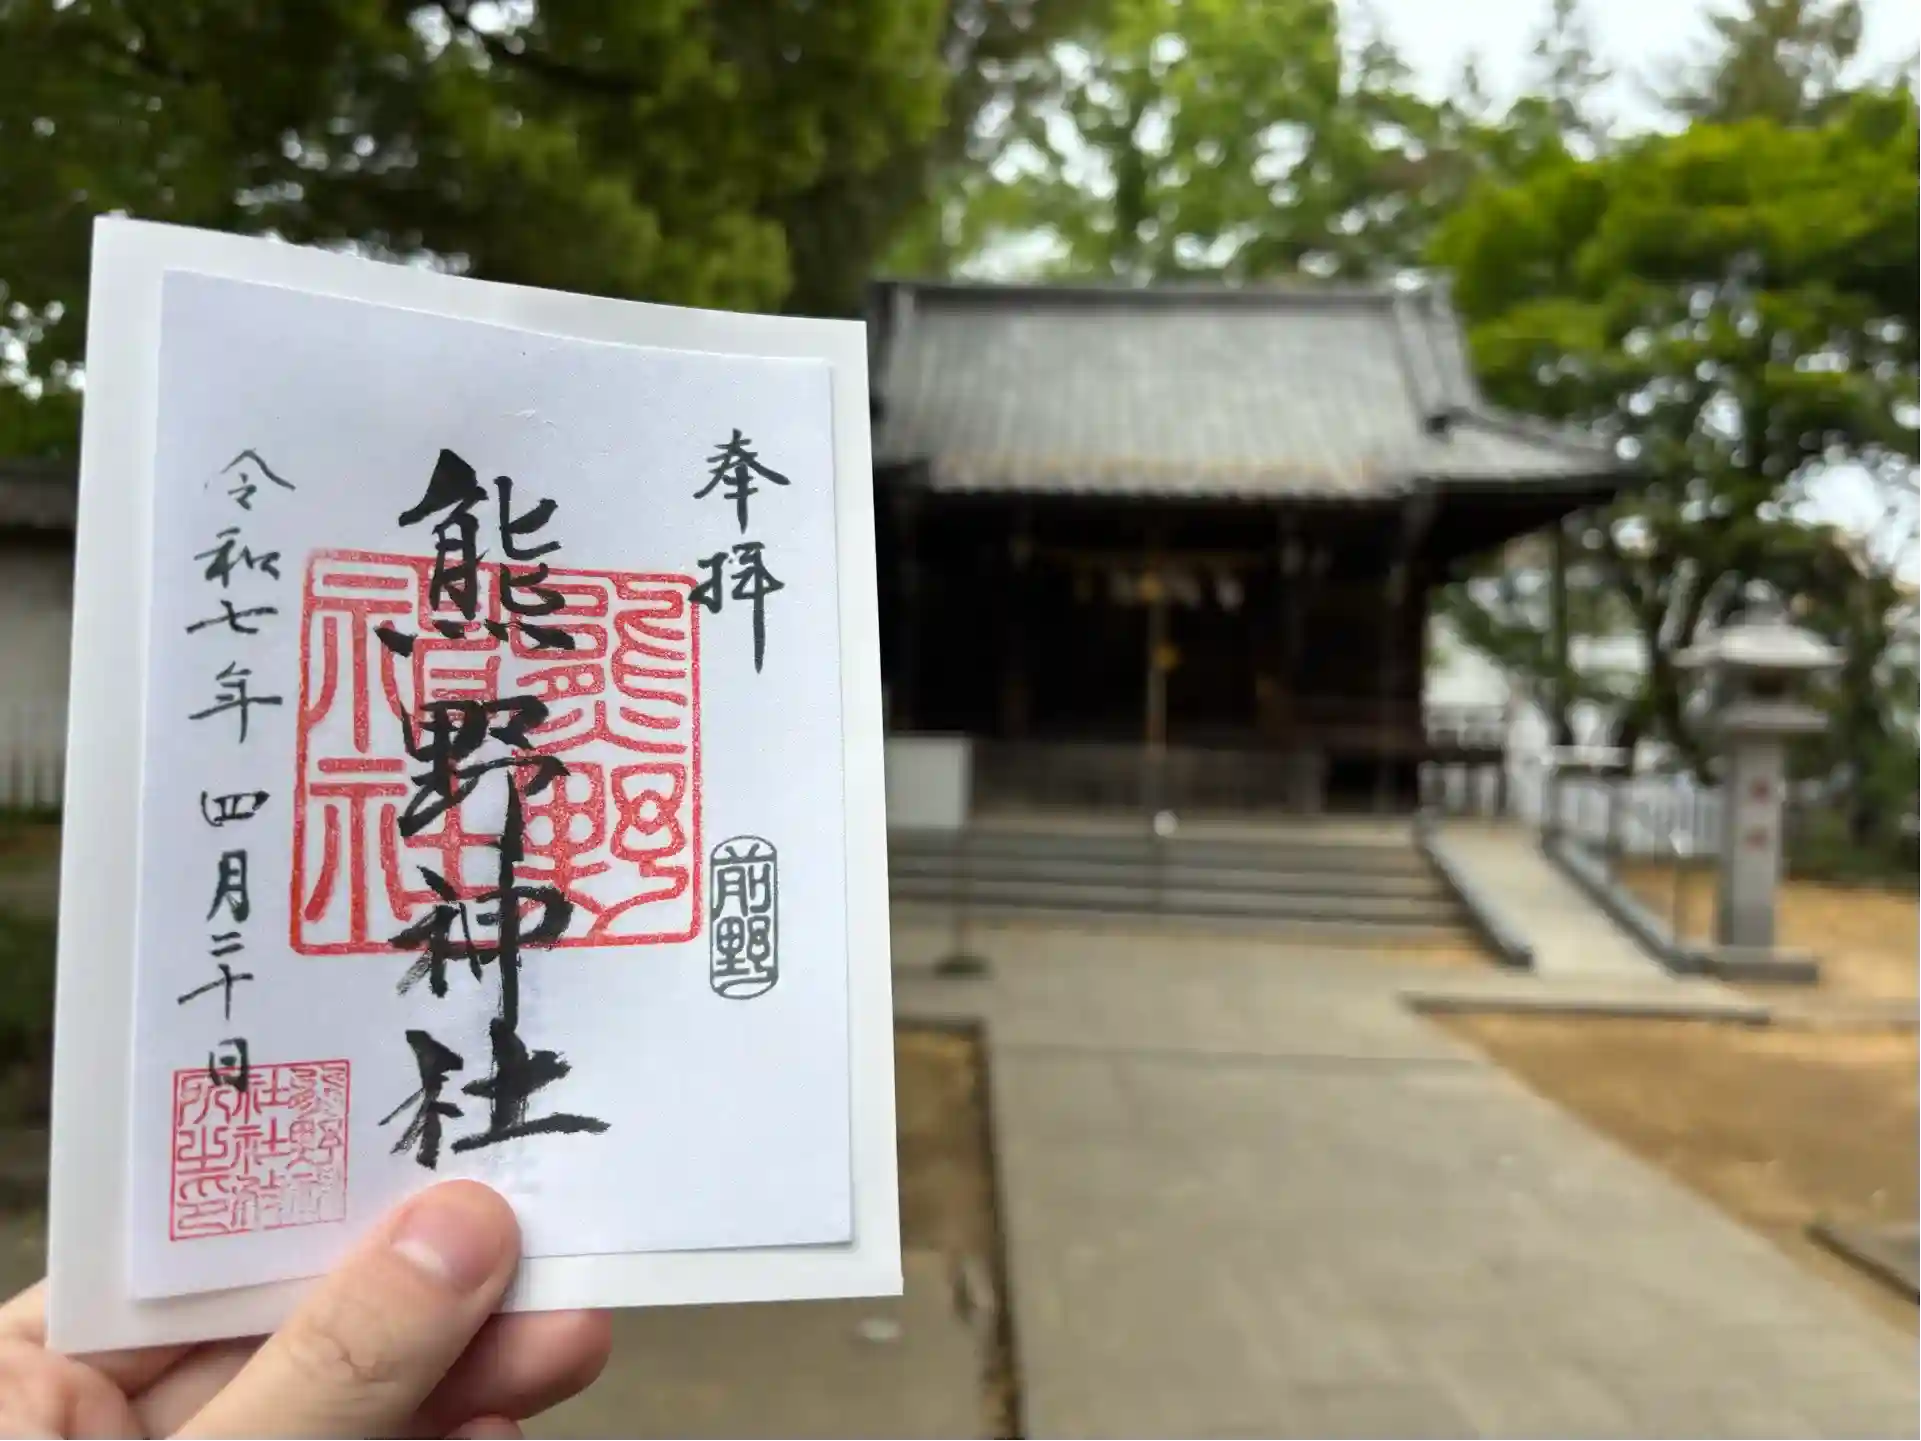 奉拝
前野
熊野神社
熊野
神社
令和七年四月二十日